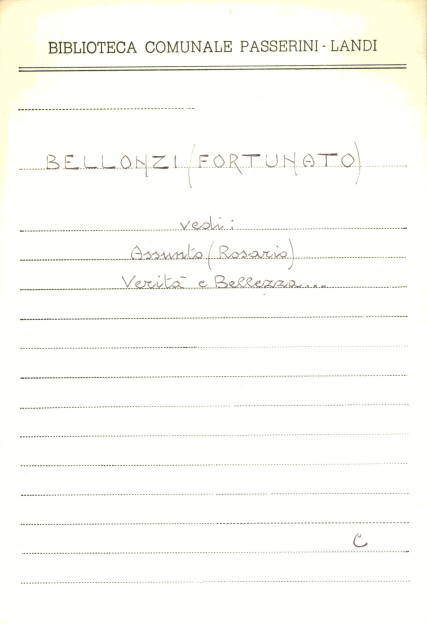 BIBLIOTECA COMUNALE PASSERINI - LANDI
BELLONZI (FORTUNATO)
vedi:
Assunto (Rosario)
Verità e Bellezza...
C